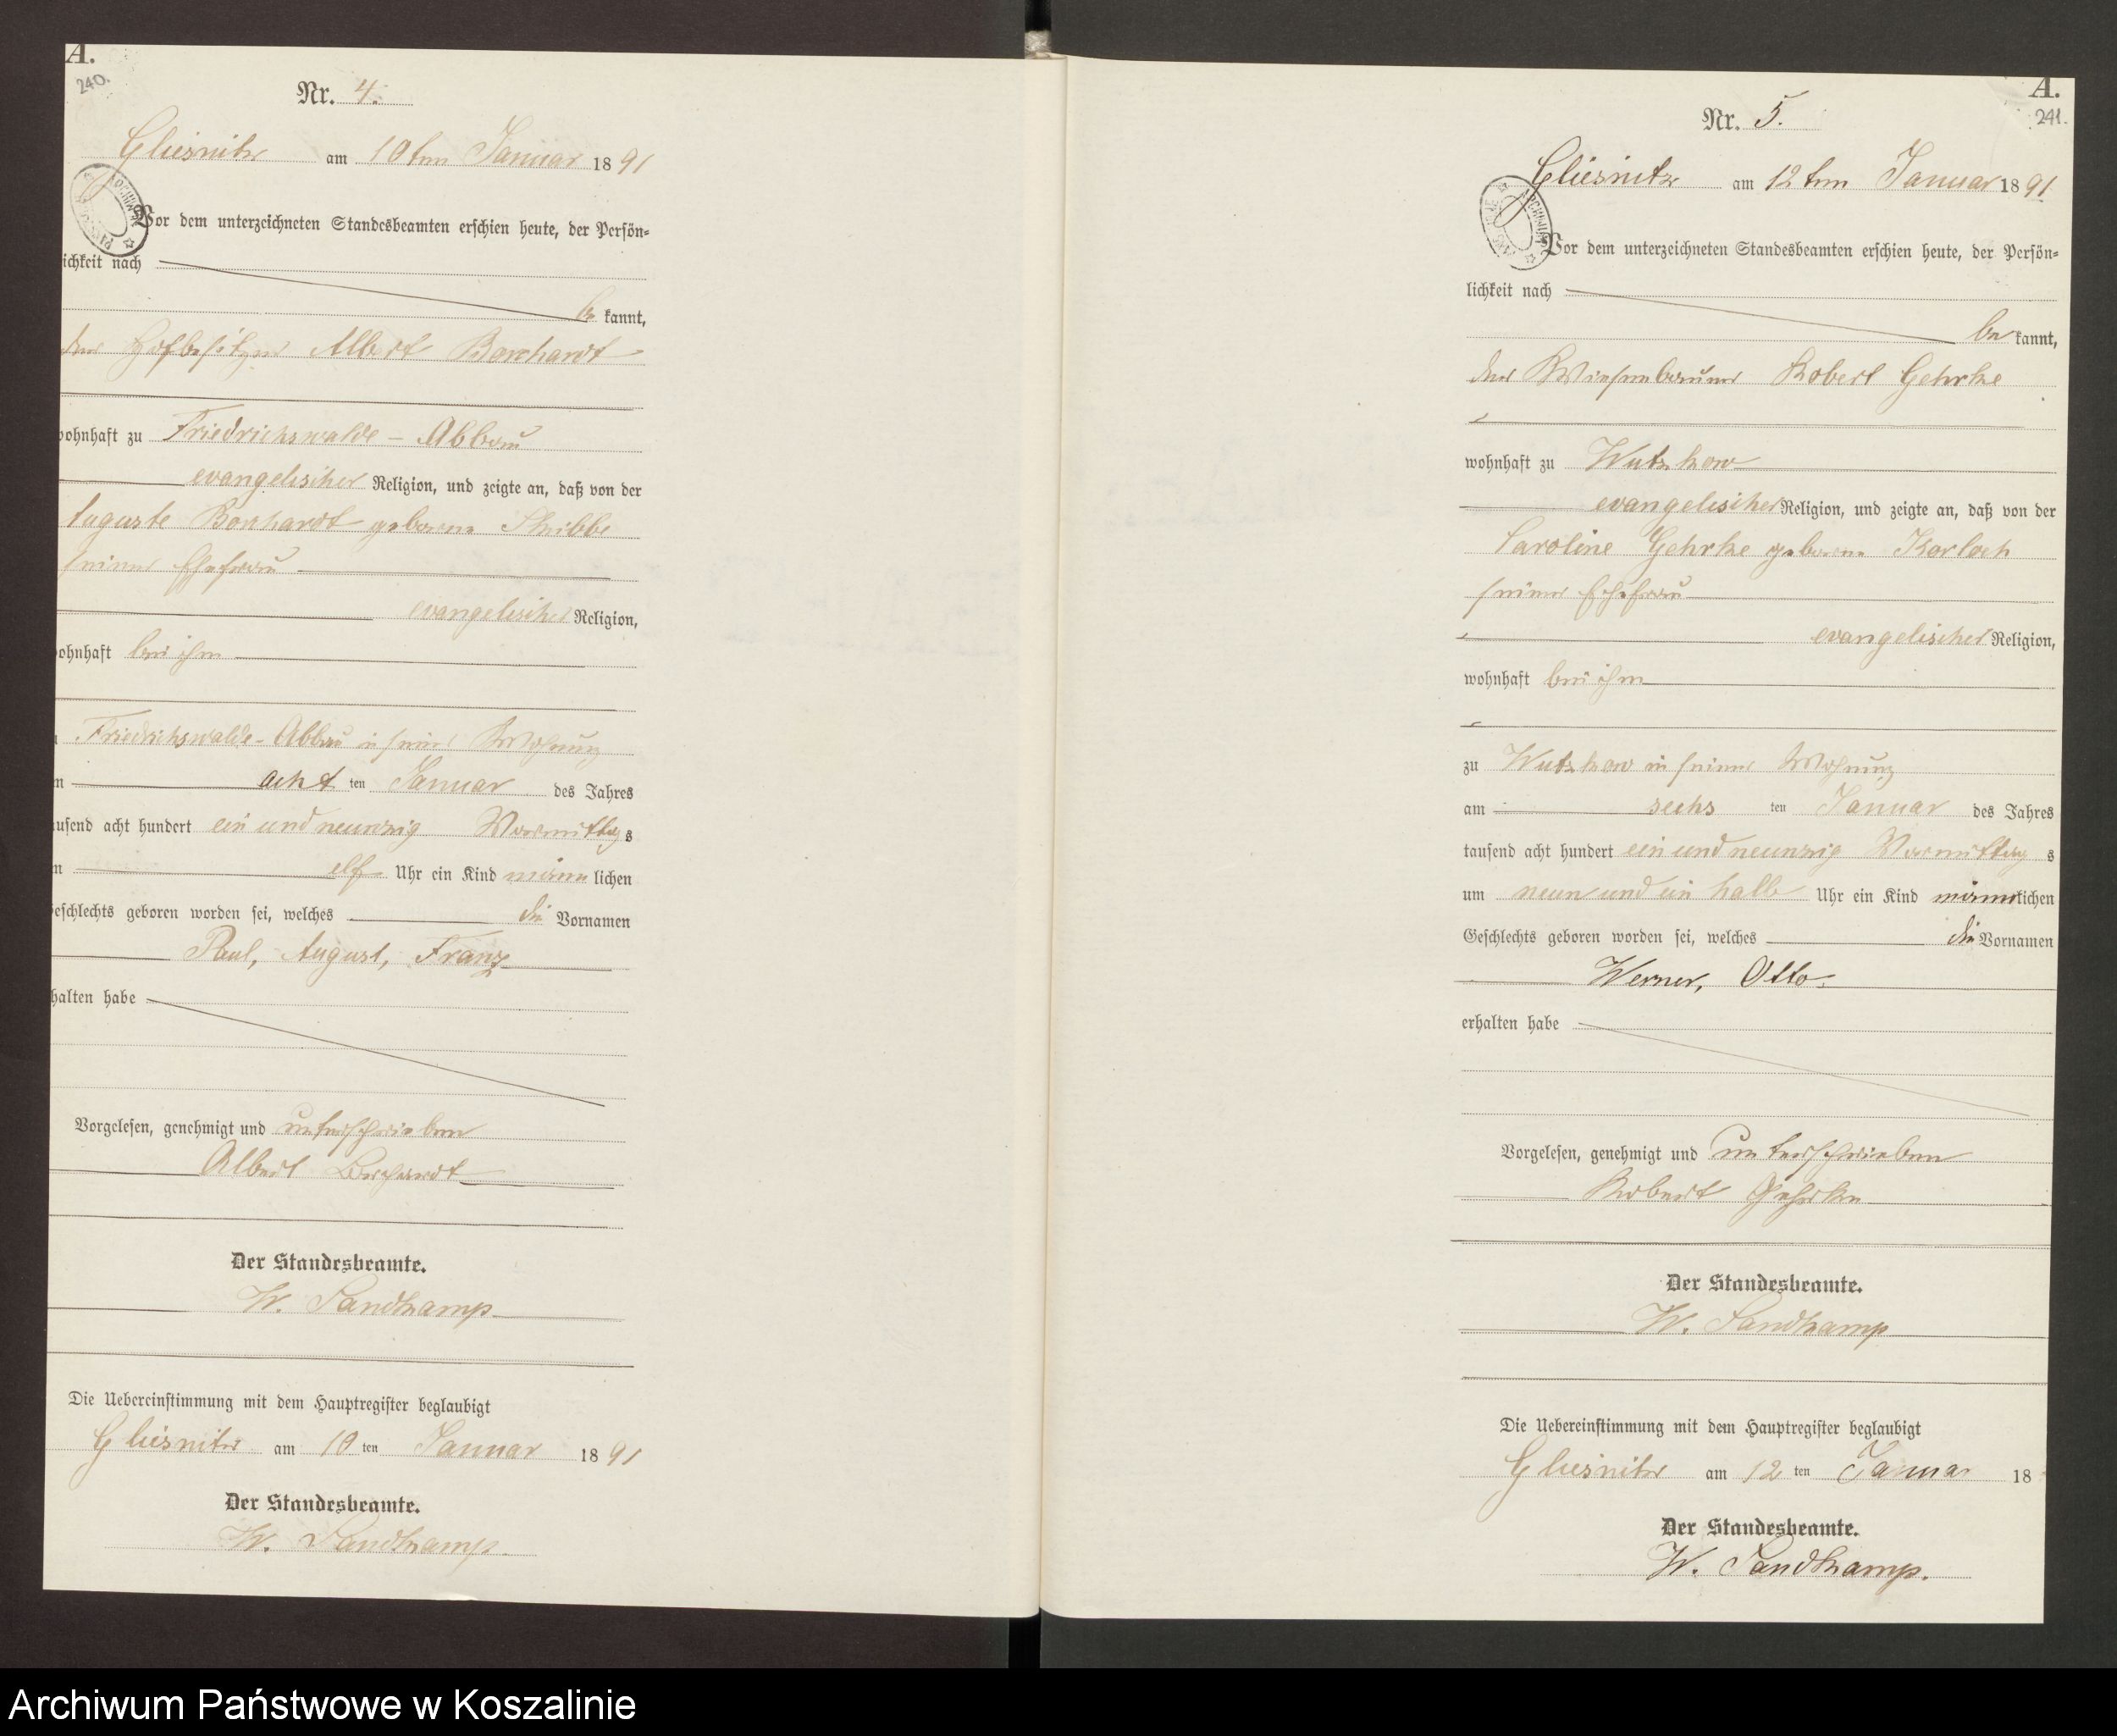 A.
240.
Nr. 4.
Gliesnitz am 10ten Januar 1891
Vor dem unterzeichneten Standesbeamten erschien heute, der Persön-
ichkeit nach
be kannt,
der Hofbesitzer Albert Borchardt
wohnhaft zu Friedrichswalde - Abbau
evangelischer Religion, und zeigte an, daß von der
Auguste Borchardt geborene
seiner Ehefrau
evangelischer Religion,
ohnhaft bei ihm
Friedrichswalde-Abbau in seiner Wohnung
acht ten Januar des Jahres
ausend acht hundert ein und neunzig Vormittags
elf Uhr ein Kind männlichen
eschlechts geboren worden sei, welches die Vornamen
Paul, August, Franz
halten habe
Vorgelesen, genehmigt und unterschrieben
Albert Borchardt
Der Standesbeamte.
W. Sandkamp
Die Uebereinstimmung mit dem Hauptregister beglaubigt
Gliesnitz am 10 ten Januar 1891
Der Standesbeamte.
W. Sandkamp.
A.
241.
Nr. 5.
Gliesnitz am 12ten Januar 1891
Vor dem unterzeichneten Standesbeamten erschien heute, der Persön-
lichkeit nach
be kannt,
der Wiesenbauer Robert Gehrke
wohnhaft zu Wutzkow
evangelischer Religion, und zeigte an, daß von der
Caroline Gehrke geborene
seiner Ehefrau
evangelischer Religion,
wohnhaft bei ihm
zu Wutzkow in seiner Wohnung
am sechs ten Januar des Jahres
tausend acht hundert ein und neunzig Vormittag s
um neun und ein halb Uhr ein Kind männlichen
Geschlechts geboren worden sei, welches die Vornamen
Werner, Otto.
erhalten habe
Vorgelesen, genehmigt und unterschrieben
Robert Gehrke
Der Standesbeamte.
W. Sandkamp
Die Uebereinstimmung mit dem Hauptregister beglaubigt
Gliesnitz am 12 ten Januar 18
Der Standesbeamte.
W. Sandkamp.
Archiwum Państwowe w Koszalinie